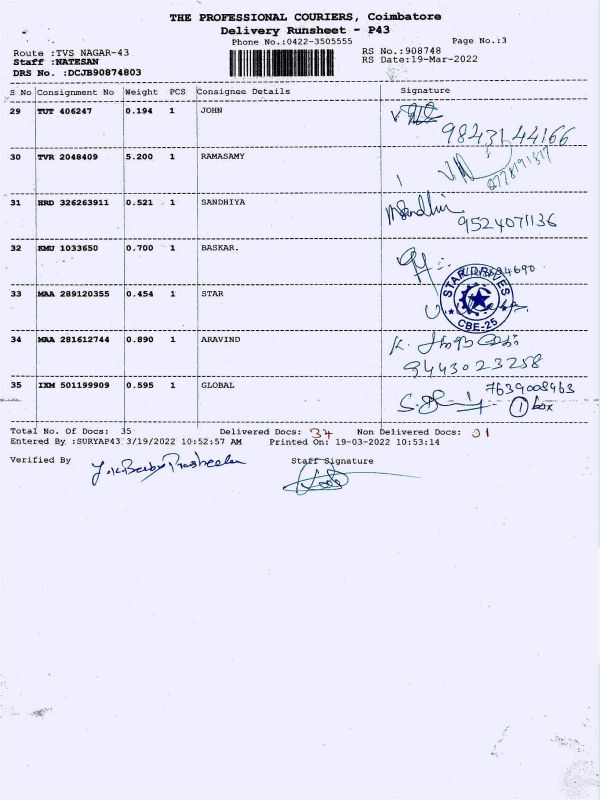 THE PROFESSIONAL COURIERS, Coimbatore
Delivery Runsheet - P43
Phone No.:0422-3505555 Page No.:3
Route :TVS NAGAR-43 RS No.:908748
Staff :NATESAN RS Date:19-Mar-2022
DRS No. :DCJB90874803
S No Consignment No Weight PCS Consignee Details Signature
29 TUT 406247 0.194 1 JOHN
9843144166
30 TVR 2048409 5.200 1 RAMASAMY
31 HRD 326263911 0.521 1 SANDHIYA
9524071136
32 KMU 1033650 0.700 1 BASKAR.
33 MAA 289120355 0.454 1 STAR
STAR DRIVES
CBE-25
34 MAA 281612744 0.890 1 ARAVIND
9443023258
35 IXM 501199909 0.595 1 GLOBAL
7639008463
1 box
Total No. Of Docs: 35 Delivered Docs: 34 Non Delivered Docs: 01
Entered By :SURYAP43 3/19/2022 10:52:57 AM Printed On: 19-03-2022 10:53:14
Verified By Staff Signature